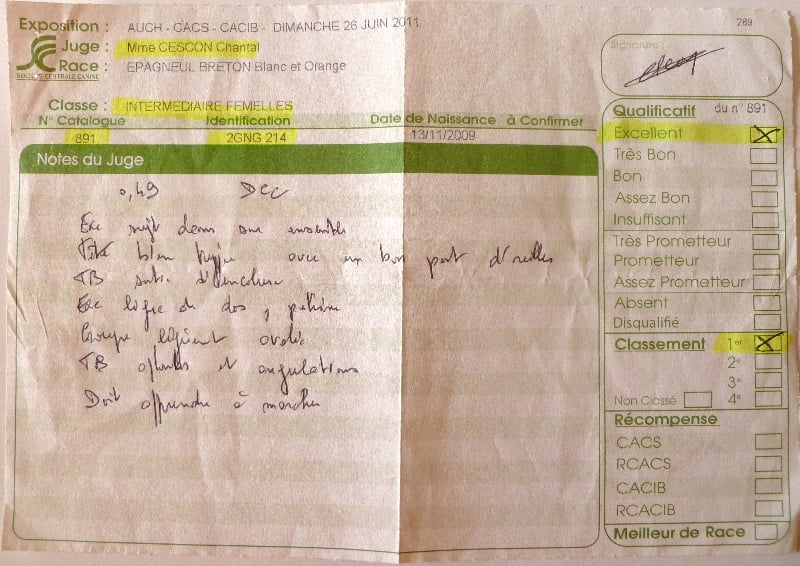 Exposition : AUCH - CACS - CACIB - DIMANCHE 26 JUIN 2011
269
Juge : Mme CESCON Chantal
Race : EPAGNEUL BRETON Blanc et Orange
SOCIÉTÉ CENTRALE CANINE
Classe : INTERMEDIAIRE FEMELLES
N° Catalogue Identification Date de Naissance à Confirmer
891 2GNG 214 13/11/2009
Notes du Juge
0,49 DCC
Exc sujet dans son ensemble
bien avec un bon port d'oreilles
TB sortie d'encolure
Exc ligne de dos, poitrine
Croupe légèrement avalée
TB aplombs et angulations
Doit apprendre à marcher
Signature
Qualificatif du n° 891
Excellent
Très Bon
Bon
Assez Bon
Insuffisant
Très Prometteur
Prometteur
Assez Prometteur
Absent
Disqualifié
Classement 1er
2e
3e
Non Classé 4e
Récompense
CACS
RCACS
CACIB
RCACIB
Meilleur de Race